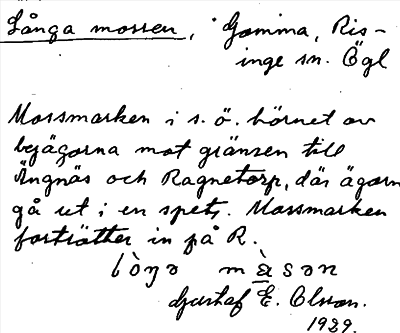 Långa mossen, Gamma, Ris-
inge sn. Ögl
Mossmarken i s. ö. hörnet av
byägorna mot gränsen till
Ängnäs och Ragnetorp, där ägorn
gå ut i en spets. Mossmarken
fortsätter in på R.
lòŋa màsən
Gustaf E. Olsson.
1929.